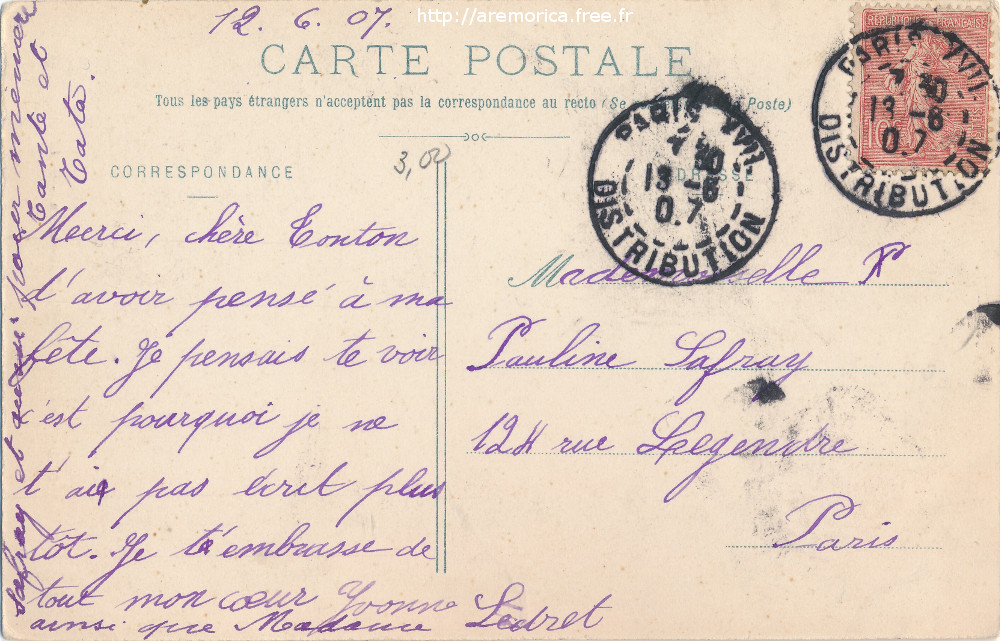 http://aremorica.free.fr
12.6.07.
RÉPUBLIQUE FRANÇAISE
CARTE POSTALE
Tous les pays étrangers n'acceptent pas la correspondance au recto (Se Poste)
3,00
CORRESPONDANCE
ADRESSE
PARIS XVII
30
13 -6
07
DISTRIBUTION
PARIS XVII
30
13 -6
07
DISTRIBUTION
Merci, chère Tonton
d'avoir pensé à ma
fête. Je pensais te voir
c'est pourquoi je ne
t'aie pas écrit plus
tôt. Je t'embrasse de
tout mon cœur Yvonne
ainsi que Madame Ledret
Safray et
Tante et
Tata.
Mademoiselle P
Pauline Safray
124 rue Legendre
Paris